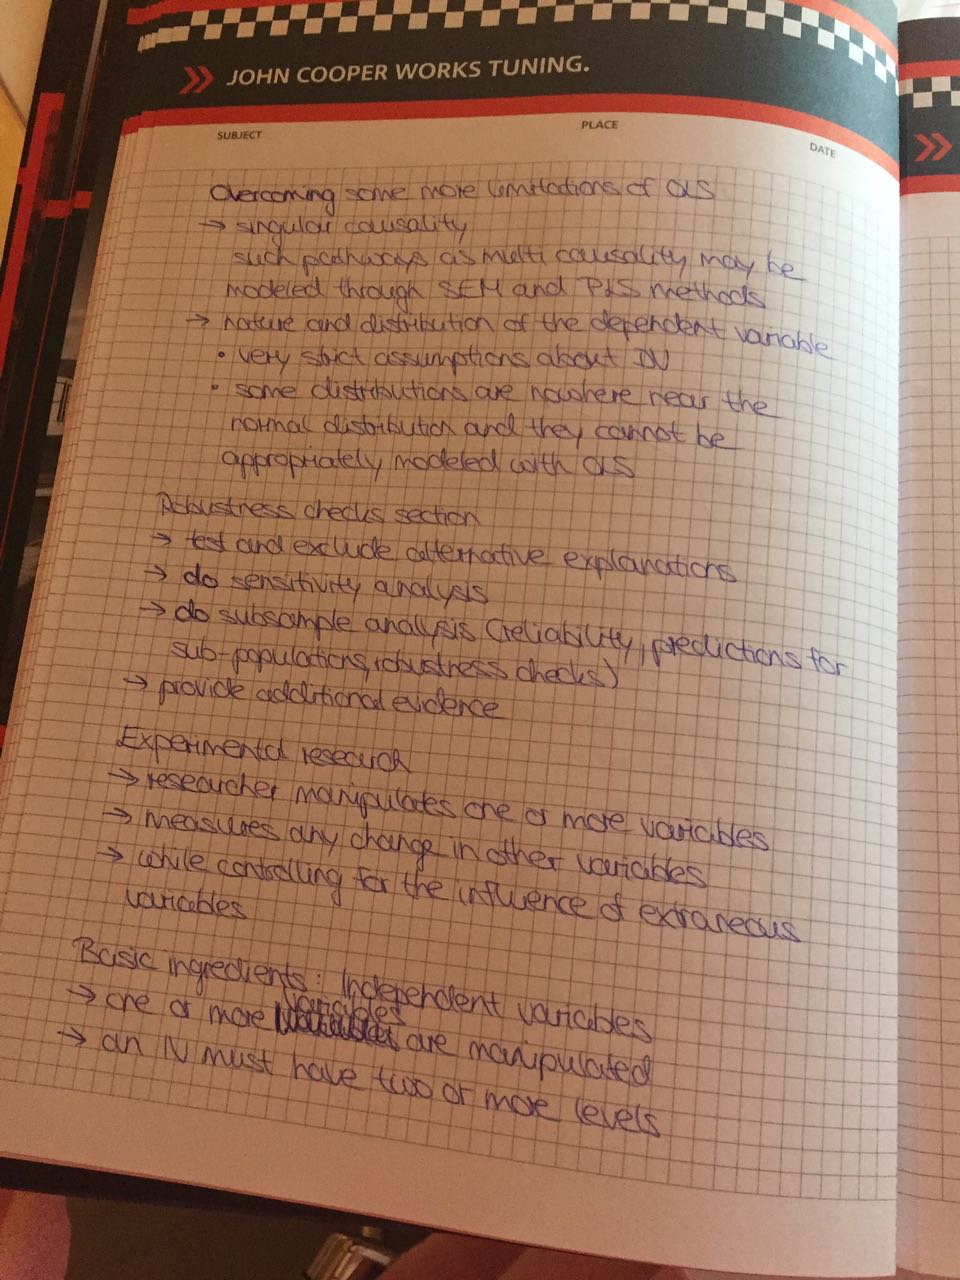 JOHN COOPER WORKS TUNING.
SUBJECT
PLACE
DATE
Overcoming some more limitations of OLS
→ singular causality
such pathways as multi causality may be
modeled through SEM and PLS methods
→ nature and distribution of the dependent variable
• very strict assumptions about DV
• some distributions are nowhere near the
normal distribution and they cannot be
appropriately modeled with OLS
Robustness checks section
→ test and exclude alternative explanations
→ do sensitivity analysis
→ do subsample analysis (reliability, predictions for
sub-populations, robustness checks)
→ provide additional evidence
Experimental research
→ researcher manipulates one or more variables
→ measures any change in other variables
→ while controlling for the influence of extraneous
variables
Basic ingredients: Independent variables
→ one or more variables are manipulated
→ an IV must have two or more levels